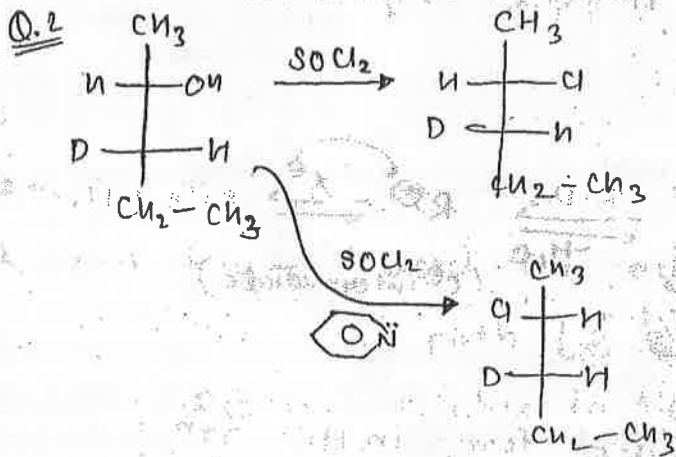 Q.2
CH3
H OH
D H
CH2-CH3
SOCl2
CH3
H Cl
D H
CH2-CH3
SOCl2
N
CH3
Cl H
D H
CH2-CH3